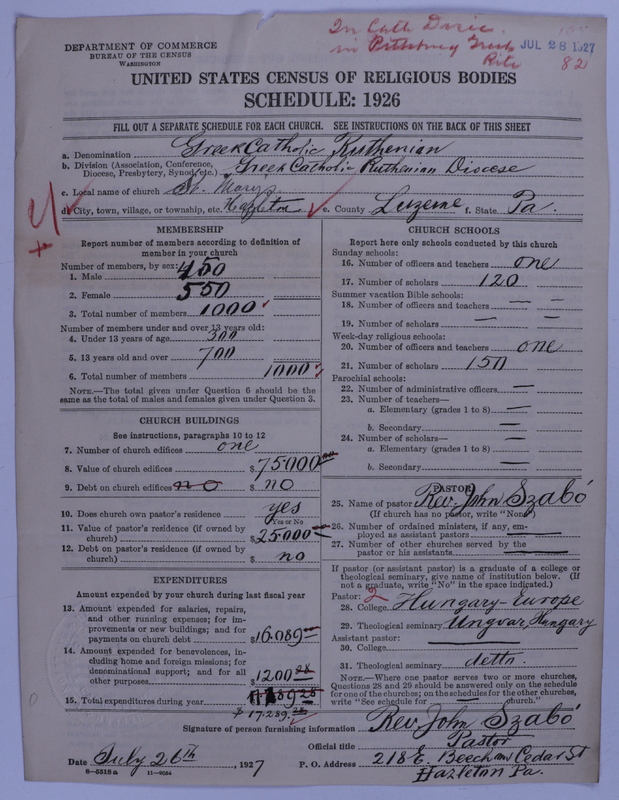 In Cath Dioc.
in Pittsburg Greek
Rite
JUL 28 1927
82
DEPARTMENT OF COMMERCE
BUREAU OF THE CENSUS
WASHINGTON
UNITED STATES CENSUS OF RELIGIOUS BODIES
SCHEDULE: 1926
FILL OUT A SEPARATE SCHEDULE FOR EACH CHURCH. SEE INSTRUCTIONS ON THE BACK OF THIS SHEET
a. Denomination Greek Catholic Ruthenian
b. Division (Association, Conference, Diocese, Presbytery, Synod, etc.) Greek Catholic Ruthenian Diocese
c. Local name of church St. Marys
d. City, town, village, or township, etc. Hazleton e. County Luzerne f. State Pa.
MEMBERSHIP
Report number of members according to definition of
member in your church
Number of members, by sex:
1. Male 450
2. Female 550
3. Total number of members 1000
Number of members under and over 13 years old:
4. Under 13 years of age 300
5. 13 years old and over 700
6. Total number of members 1000
NOTE.—The total given under Question 6 should be the
same as the total of males and females given under Question 3.
CHURCH BUILDINGS
See instructions, paragraphs 10 to 12
7. Number of church edifices one
8. Value of church edifices $ 75000 00
9. Debt on church edifices no $ no
10. Does church own pastor's residence yes
Yes or No
11. Value of pastor's residence (if owned by
church) $ 25000
12. Debt on pastor's residence (if owned by
church) $ no
EXPENDITURES
Amount expended by your church during last fiscal year
13. Amount expended for salaries, repairs,
and other running expenses; for im-
provements or new buildings; and for
payments on church debt $16.089
14. Amount expended for benevolences, in-
cluding home and foreign missions; for
denominational support; and for all
other purposes $1200 28
15. Total expenditures during year
$ 17.289. 28
CHURCH SCHOOLS
Report here only schools conducted by this church
Sunday schools:
16. Number of officers and teachers one
17. Number of scholars 120
Summer vacation Bible schools:
18. Number of officers and teachers — —
19. Number of scholars — —
Week-day religious schools:
20. Number of officers and teachers one
21. Number of scholars 150
Parochial schools:
22. Number of administrative officers —
23. Number of teachers—
a. Elementary (grades 1 to 8) —
b. Secondary —
24. Number of scholars—
a. Elementary (grades 1 to 8) —
b. Secondary —
PASTOR
25. Name of pastor Rev. John Szabó
(If church has no pastor, write "None")
26. Number of ordained ministers, if any, em-
ployed as assistant pastors —
27. Number of other churches served by the
pastor or his assistants —
If pastor (or assistant pastor) is a graduate of a college or
theological seminary, give name of institution below. (If
not a graduate, write "No" in the space indicated.)
Pastor: 2
28. College Hungary-Europe
29. Theological seminary Ungvar, Hungary
Assistant pastor:
30. College
31. Theological seminary detto.
NOTE.—Where one pastor serves two or more churches,
Questions 28 and 29 should be answered only on the schedule
for one of the churches; on the schedules for the other churches,
write "See schedule for — church."
Signature of person furnishing information Rev. John Szabó
Official title Pastor
Date July 26th, 1927 P. O. Address 218 E. Beech and Cedar St
Hazleton Pa.
8-5518a 11-9064